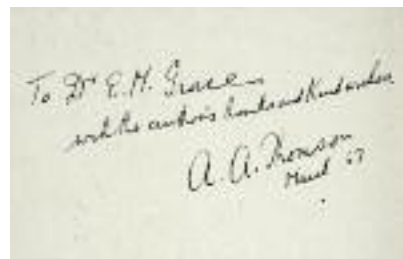 To Dr E.M. Grace
with the author's thanks and kind wishes
A. A. Thomson
March 67